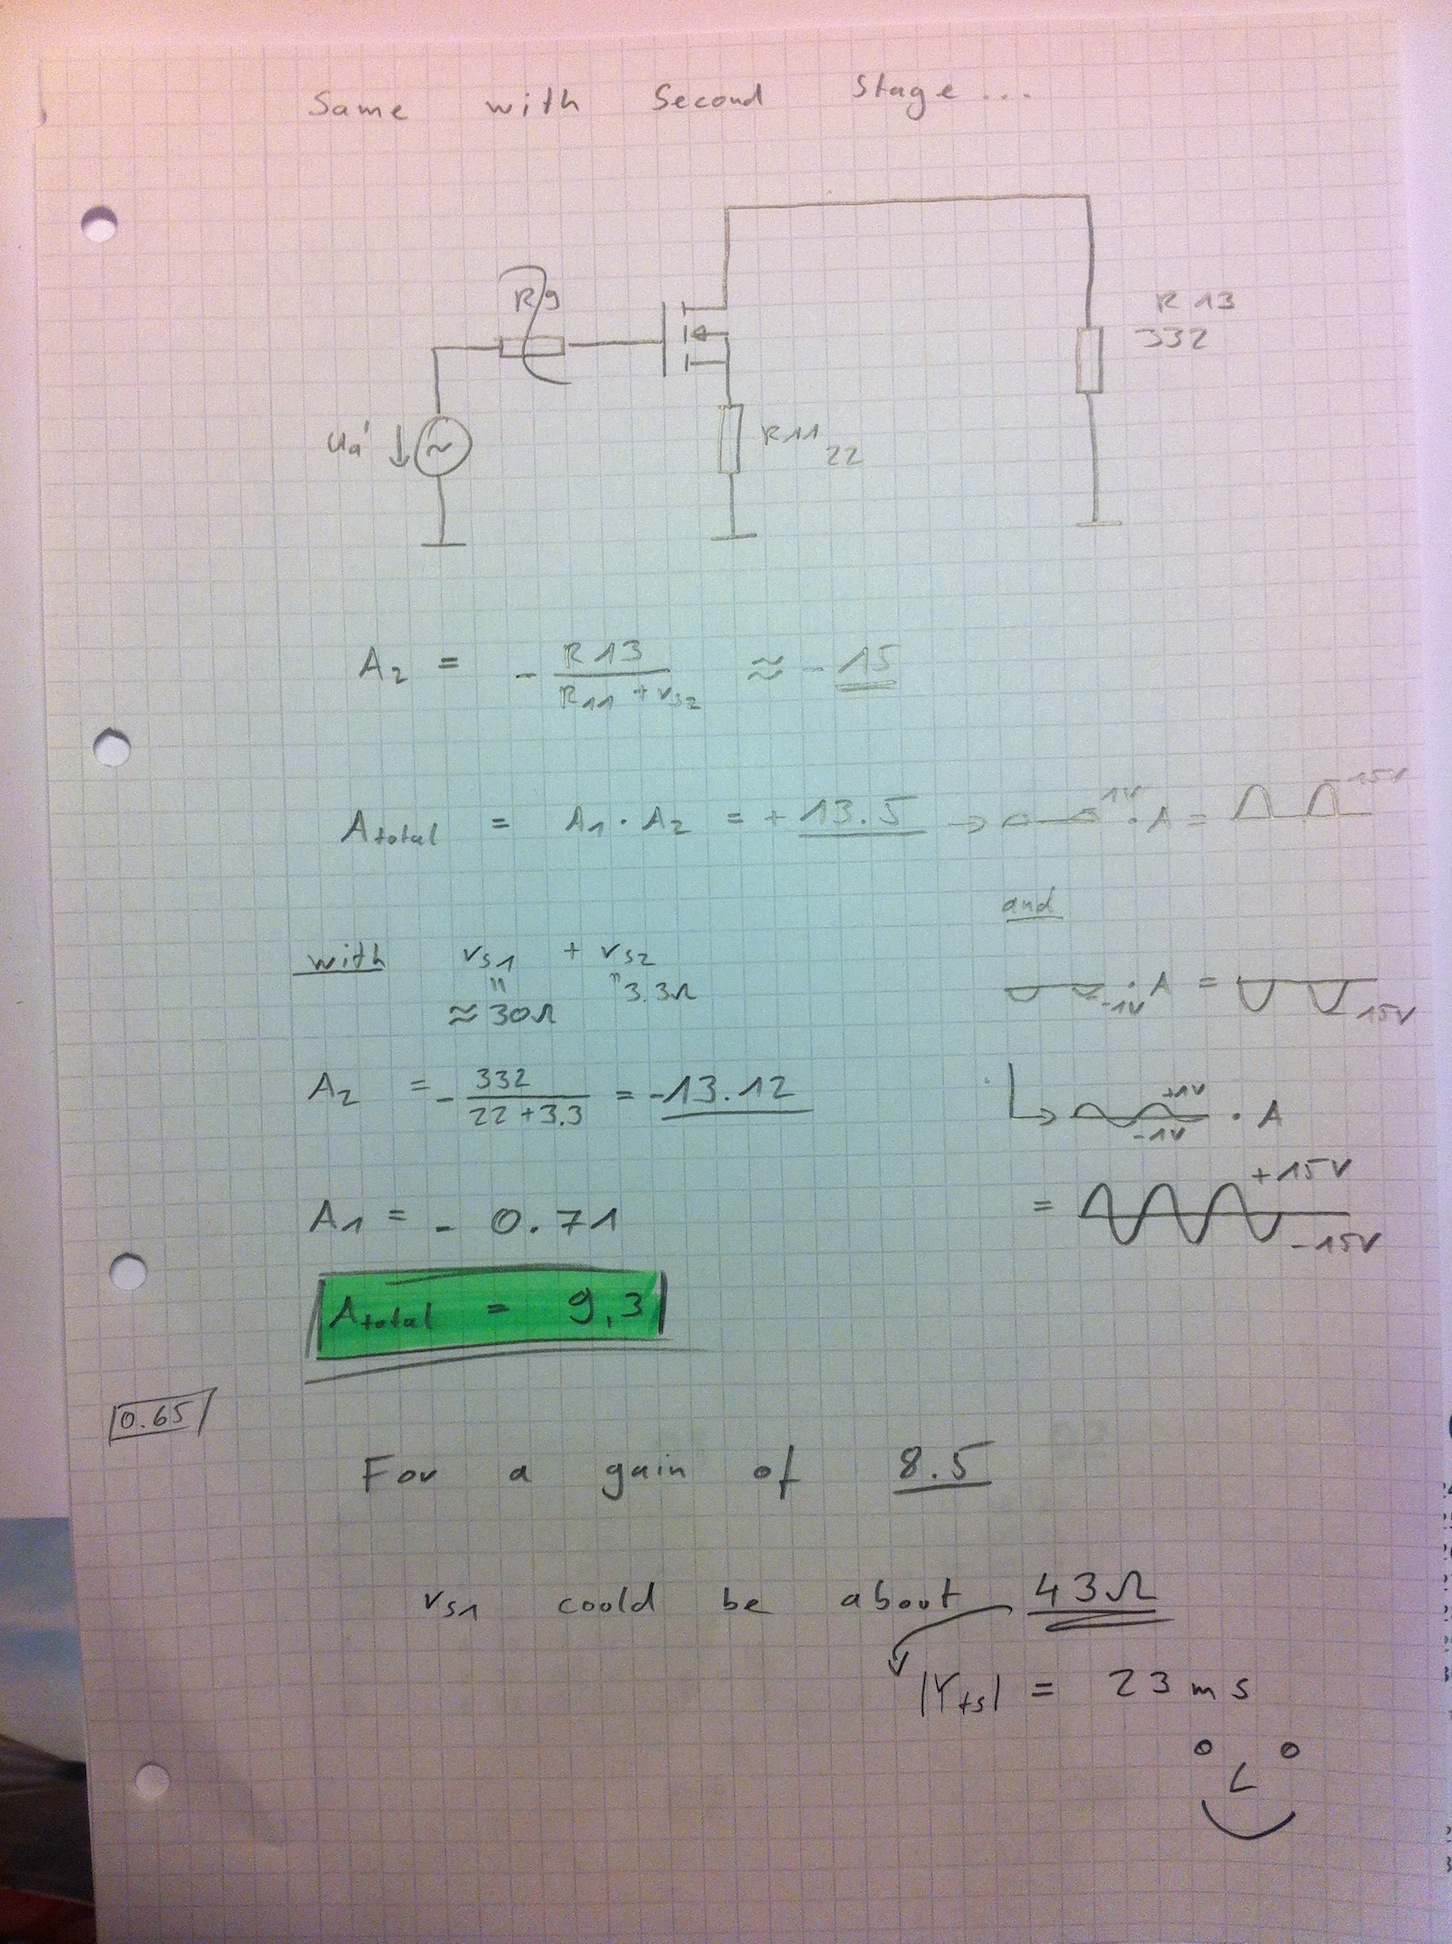 Same with Second Stage...
R9
R13
332
ua'
~
R11
22
A2 = - R13 / (R11 + rs2) ≈ - 15
Atotal = A1 · A2 = + 13.5 → 1V · A = 15V
and
-1V · A = 15V
with rs1 + rs2
" "
≈ 30Ω 3.3Ω
A2 = - 332 / (22 + 3.3) = -13.12
+1V
-1V · A
= +15V
-15V
A1 = - 0.71
Atotal = 9,3
0.65
For a gain of 8.5
rs1 could be about 43Ω
|Yfs| = 23 ms